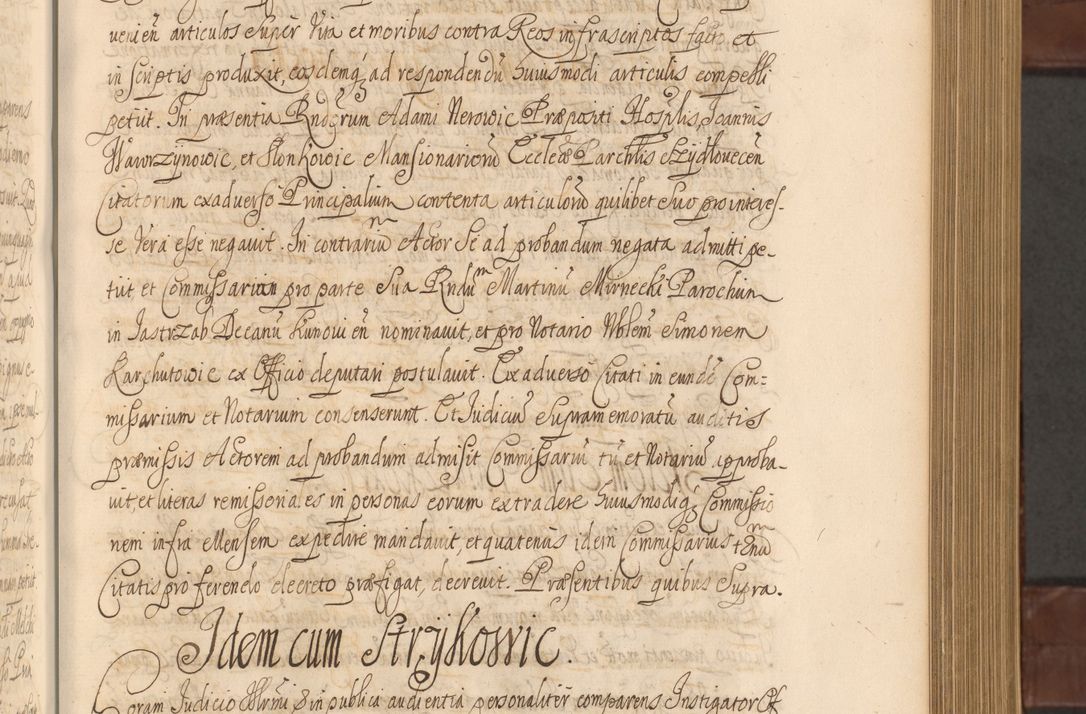 venien articulos super vita et moribus contra Reos infrascriptos facto et
in scriptis produxit, eosdemq, ad respondendū huiusmodi articulis compelli
petiit. In præsentia Rndorum Adami Nerowic Præpositi Hosplis, Joannis
Wawrzynowic, et Slonkowic Mansionariorū Eccleæ Parchlis Szydłovecen
Citatorum exadverso Principalium contenta articulorū quilibet suo pro interes-
se vera esse negavit. In contrariū Actor se ad probandum negata admitti pe-
tiit, et Commissarium pro parte sua Rndū Martinū Mirnecki Parochum
in Jastrząb Decanū Kunovien nominavit, et pro Notario Nblem Simonem
Karchutowic ex Officio deputari postulavit. Ex adverso Citati in eundē Com:
missarium et Notarium consenserunt. Et Judiciū supramemoratū auditis
præmissis Actorem ad probandum admisit Commissariū tū et Notariū approba-
vit, et literas remissoriales in personas eorum extradere huiusmodiq, Commissio
nem infra Mensem expedire mandavit, et quatenus idem Commissarius tmnū
Citatis pro ferendo decreto præfigat, decrevit. Præsentibus quibus supra.
Idem cum Stryikowic.
Coram Judicio Illrmi, & in publica audientia personaliter comparens Instigator Off